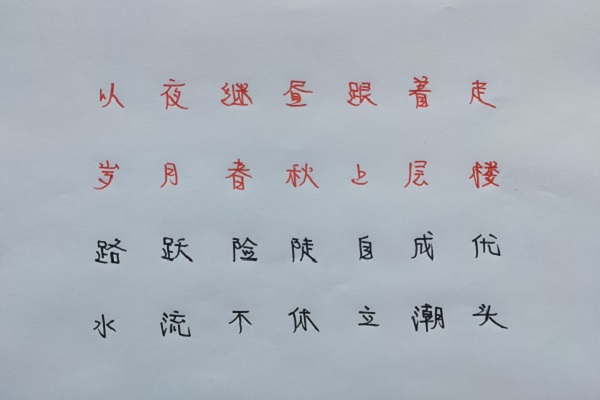 以夜继昼跟着走
岁月春秋上层楼
路跃险陡自成优
水流不休立潮头